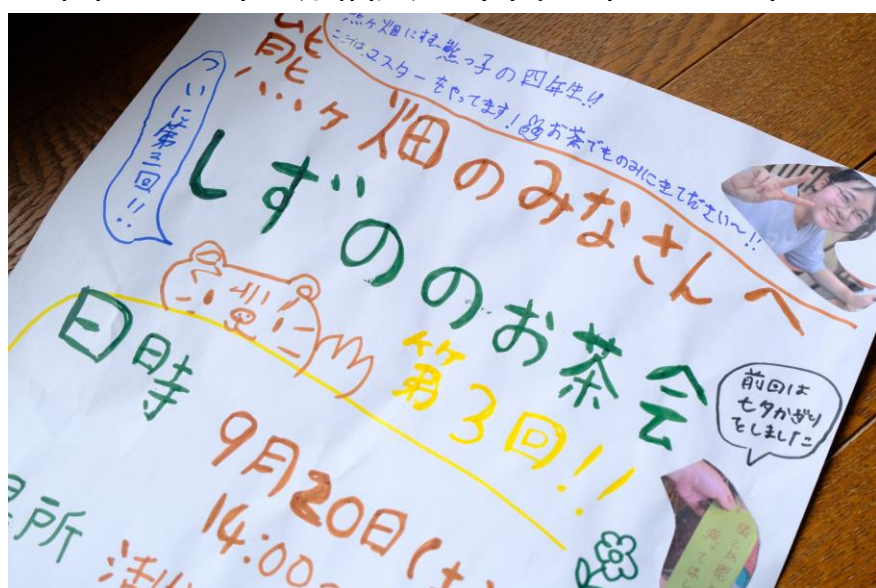 熊ヶ畑にすむ熊っ子の四年生!!
ここではマスターをやってます!お茶でものみにきてださい〜!!
熊ヶ畑のみなさんへ
ついに第三回!!
しずののお茶会
第3回!!
前回は
七夕かざり
をしました
日時
9月20日(土
14:00
場所